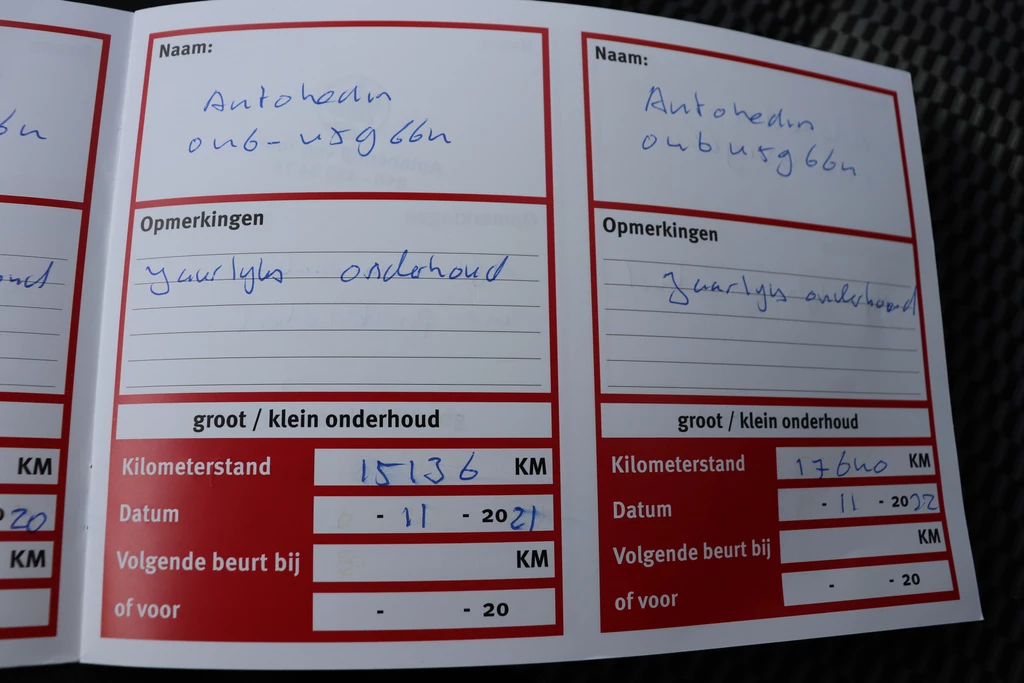 Naam:
Autohedin
onderhoud
KM
20
KM
Opmerkingen
Jaarlyks onderhoud
groot / klein onderhoud
Kilometerstand 15136 KM
Datum - 11 - 2021
Volgende beurt bij KM
of voor - - 20
Naam:
Autohedin
Opmerkingen
Jaarlyks onderhoud
groot / klein onderhoud
Kilometerstand 17640 KM
Datum - 11 - 2022
Volgende beurt bij KM
of voor - - 20